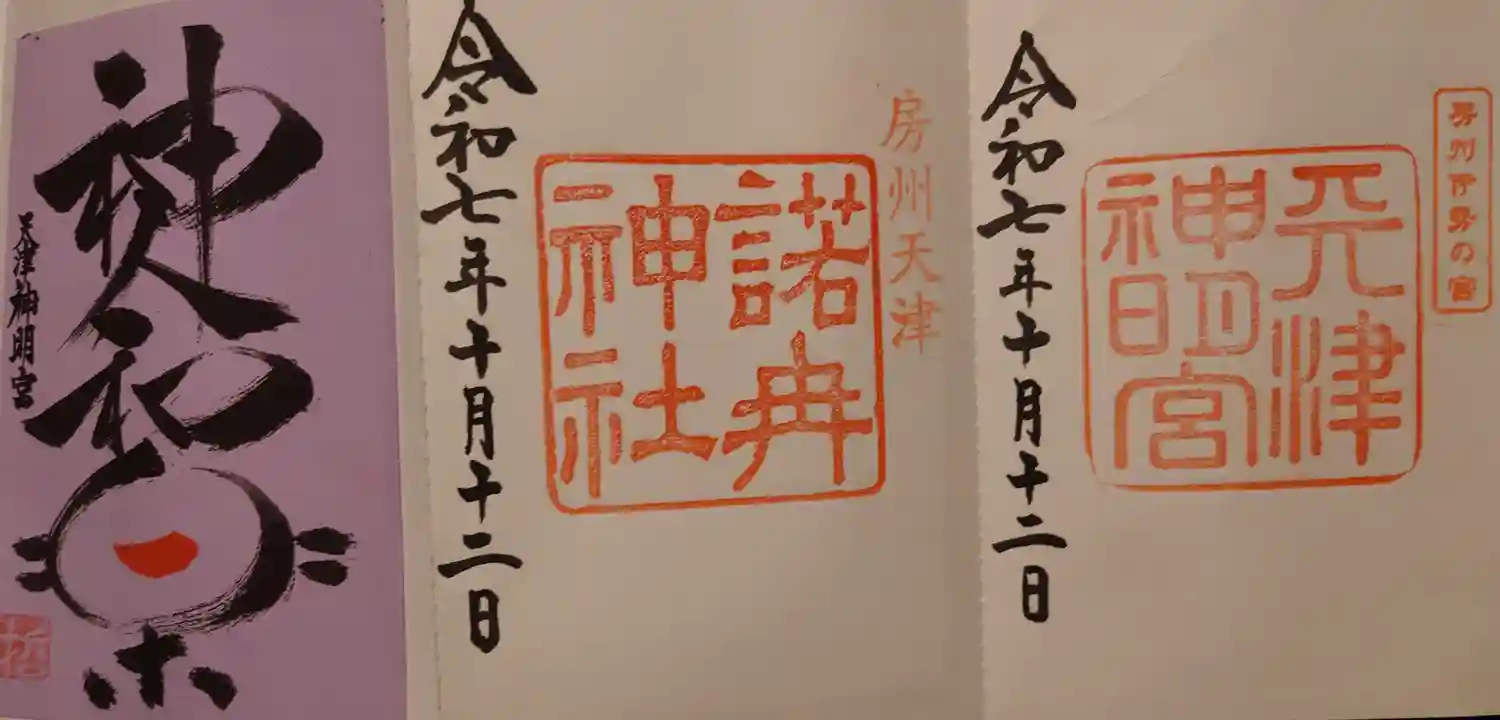 房州伊勢の宮
天津
神明宮
令和七年十月十二日
房州天津
諾冉
神社
令和七年十月十二日
神和楽
天津神明宮
哲